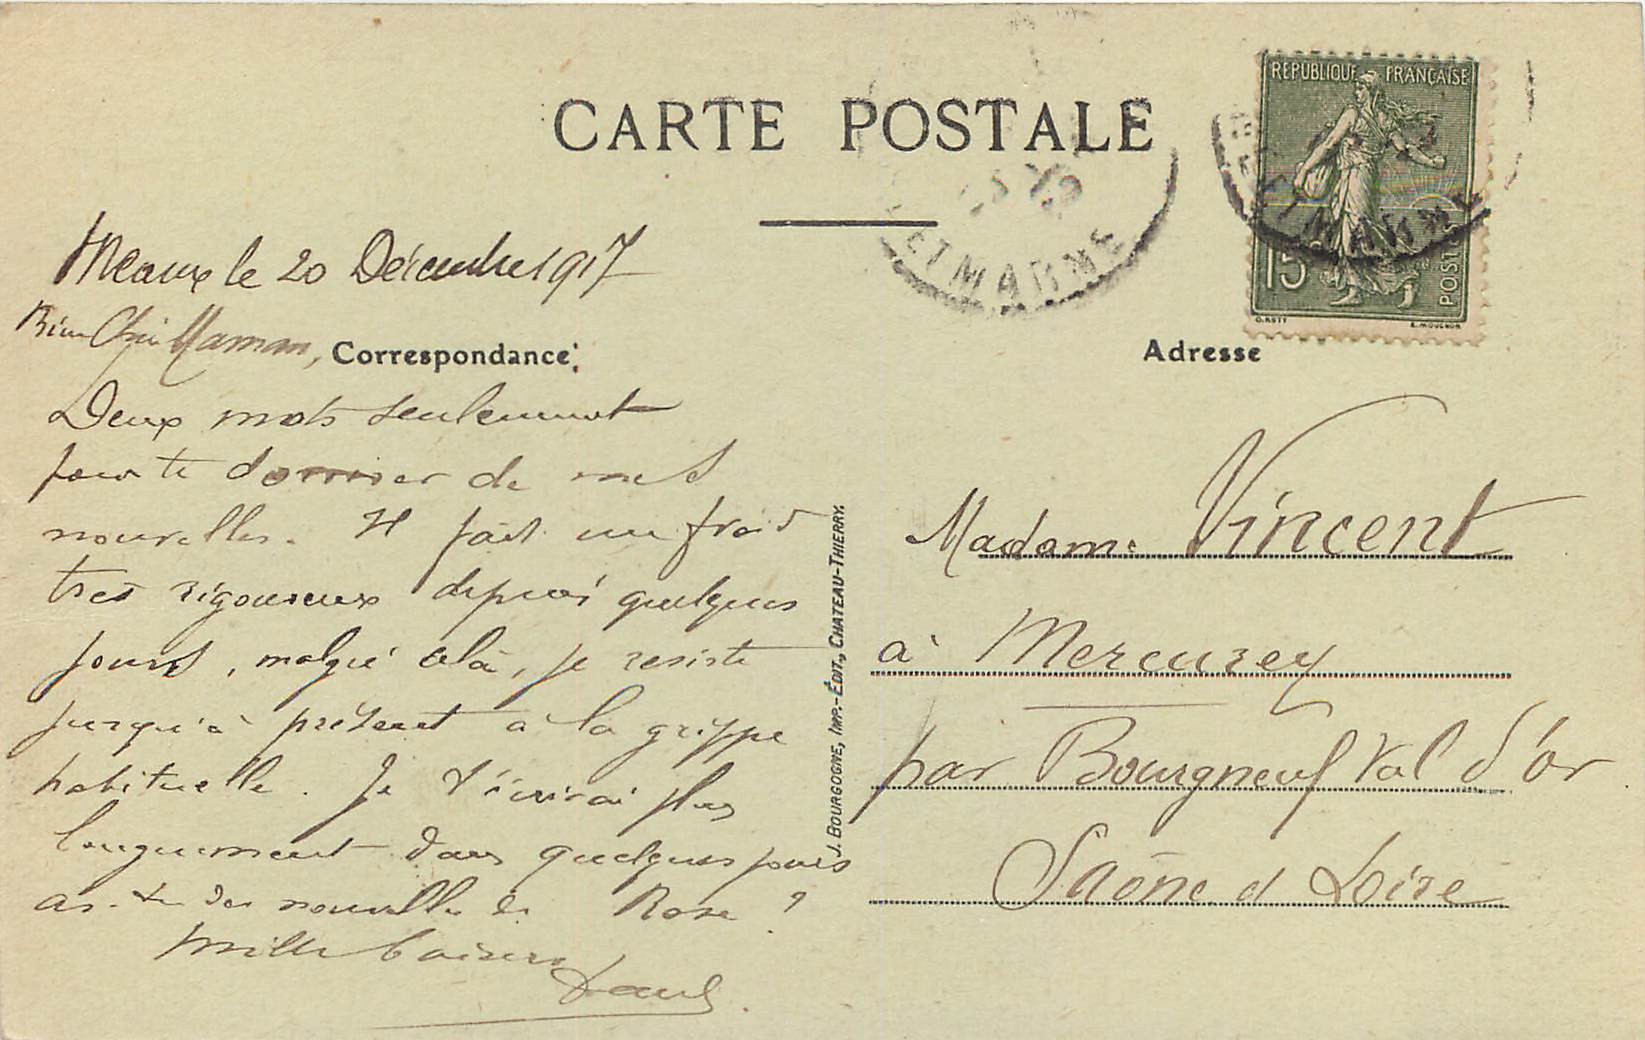 CARTE POSTALE
REPUBLIQUE FRANÇAISE
15
POSTES
O. ROTY
E. MOUCHON
ET MARNE
ET MARNE
Meaux le 20 Décembre 1917
Bien Chère Maman,
Correspondance
Deux mots seulement
pour te donner de mes
nouvelles. Il fait un froid
très rigoureux depuis quelques
jours, malgré celà, je resiste
jusqu'à présent à la grippe
habituelle. Je t'écrirai plus
longuement dans quelques jours
as-tu des nouvelles de Rose ?
Mille baisers
Paul
J. BOURGOGNE, IMP.-ÉDIT., CHATEAU-THIERRY.
Adresse
Madame Vincent
à Mercurey
par Bourgneuf Val d'or
Saône et Loire